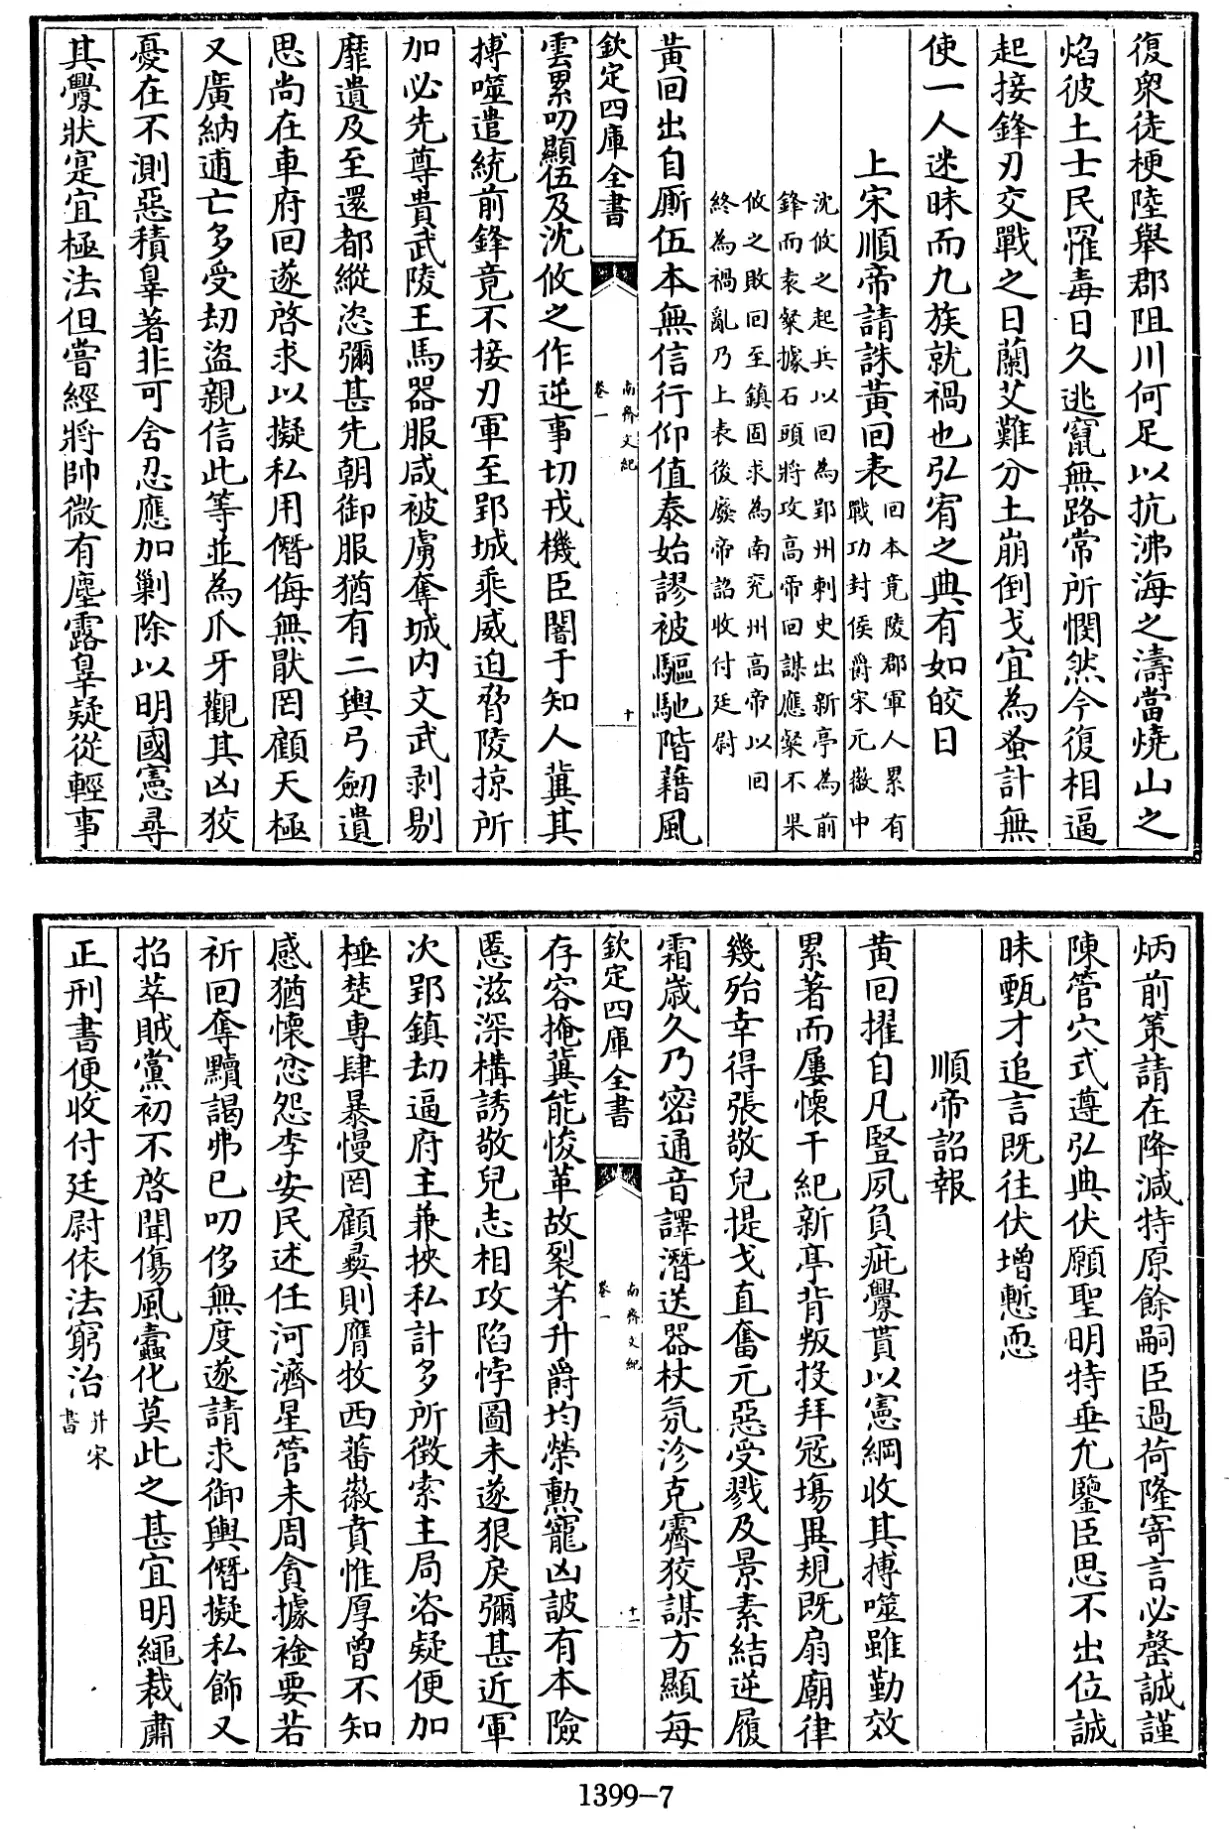 復衆徒梗陸舉郡阻川何足以抗沸海之濤當燒山之
焰彼土士民罹毒日久逃竄無路常所憫然今復相逼
起接鋒刃交戰之日蘭艾難分土崩倒戈宜為蚤計無
使一人迷昧而九族就禍也弘宥之典有如皎日
上宋順帝請誅黃回表
回本竟陵郡軍人累有
戰功封侯爵宋元徽中
沈攸之起兵以回為郢州刺史出新亭為前
鋒而袁粲據石頭將攻高帝回謀應粲不果
攸之敗回至鎮固求為南兖州高帝以回
終為禍亂乃上表後廢帝詔收付廷尉
黃回出自厮伍本無信行仰值泰始謬被驅馳階藉風
欽定四庫全書
南齊文紀
卷一
十
雲累叨顯伍及沈攸之作逆事切戎機臣闇于知人冀其
搏噬遣統前鋒竟不接刃軍至郢城乘威迫脅陵掠所
加必先尊貴武陵王馬器服咸被虜奪城内文武剥剔
靡遺及至還都縱恣彌甚先朝御服猶有二輿弓劒遺
思尚在車府回遂啓求以擬私用僭侮無猒罔顧天極
又廣納逋亡多受劫盜親信此等並為爪牙觀其凶狡
憂在不測惡積辠著非可含忍應加剿除以明國憲尋
其釁狀寔宜極法但嘗經將帥微有塵露辠疑從輕事
炳前策請在降減特原餘嗣臣過荷隆寄言必罄誠謹
陳管穴式遵弘典伏願聖明特垂允鑒臣思不出位誠
昧甄才追言既往伏增慙恧
順帝詔報
黄回擢自凡豎夙負疵釁貰以憲綱收其搏噬雖勤效
累著而屢懷干紀新亭背叛投拜冦塲異規既扇廟律
幾殆幸得張敬兒提戈直奮元惡受戮及景素結逆履
霜歲久乃密通音譯潛送器杖氛沴克霽狡謀方顯每
欽定四庫全書
南齊文紀
卷一
十一
存容掩冀能悛革故裂茅升爵均榮勲寵凶詖有本險
慝滋深構誘敬兒志相攻陷悖圖未遂狠戾彌甚近軍
次郢鎮劫逼府主兼挾私計多所徴索主局咨疑便加
極楚專肆暴慢罔顧彞則膺牧西蕃徽賁惟厚曾不知
感猶懷忿怨李安民述任河濟星管未周貪據襟要若
祈回奪黷謁弗已叨侈無度遂請求御輿僭擬私飾又
招萃賊黨初不啓聞傷風蠹化莫此之甚宜明繩裁肅
正刑書便收付廷尉依法窮治
并宋
書
1399-7